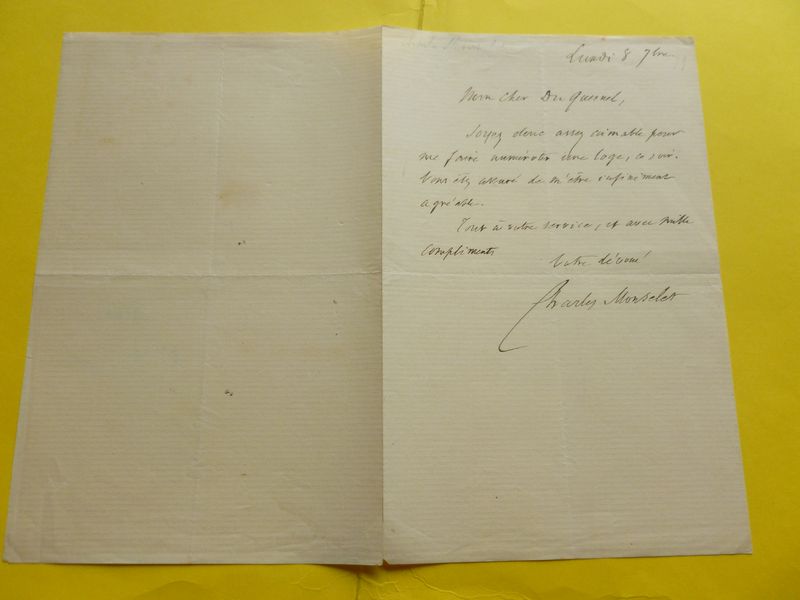 Lundi 8 7bre
Mon cher Du Quesnel,
Soyez donc assez aimable pour
me faire numéroter une loge, ce soir.
Vous êtes assuré de m'être infiniment
agréable.
Tout à votre service, et avec mille
compliments
Votre dévoué
Charles Monselet